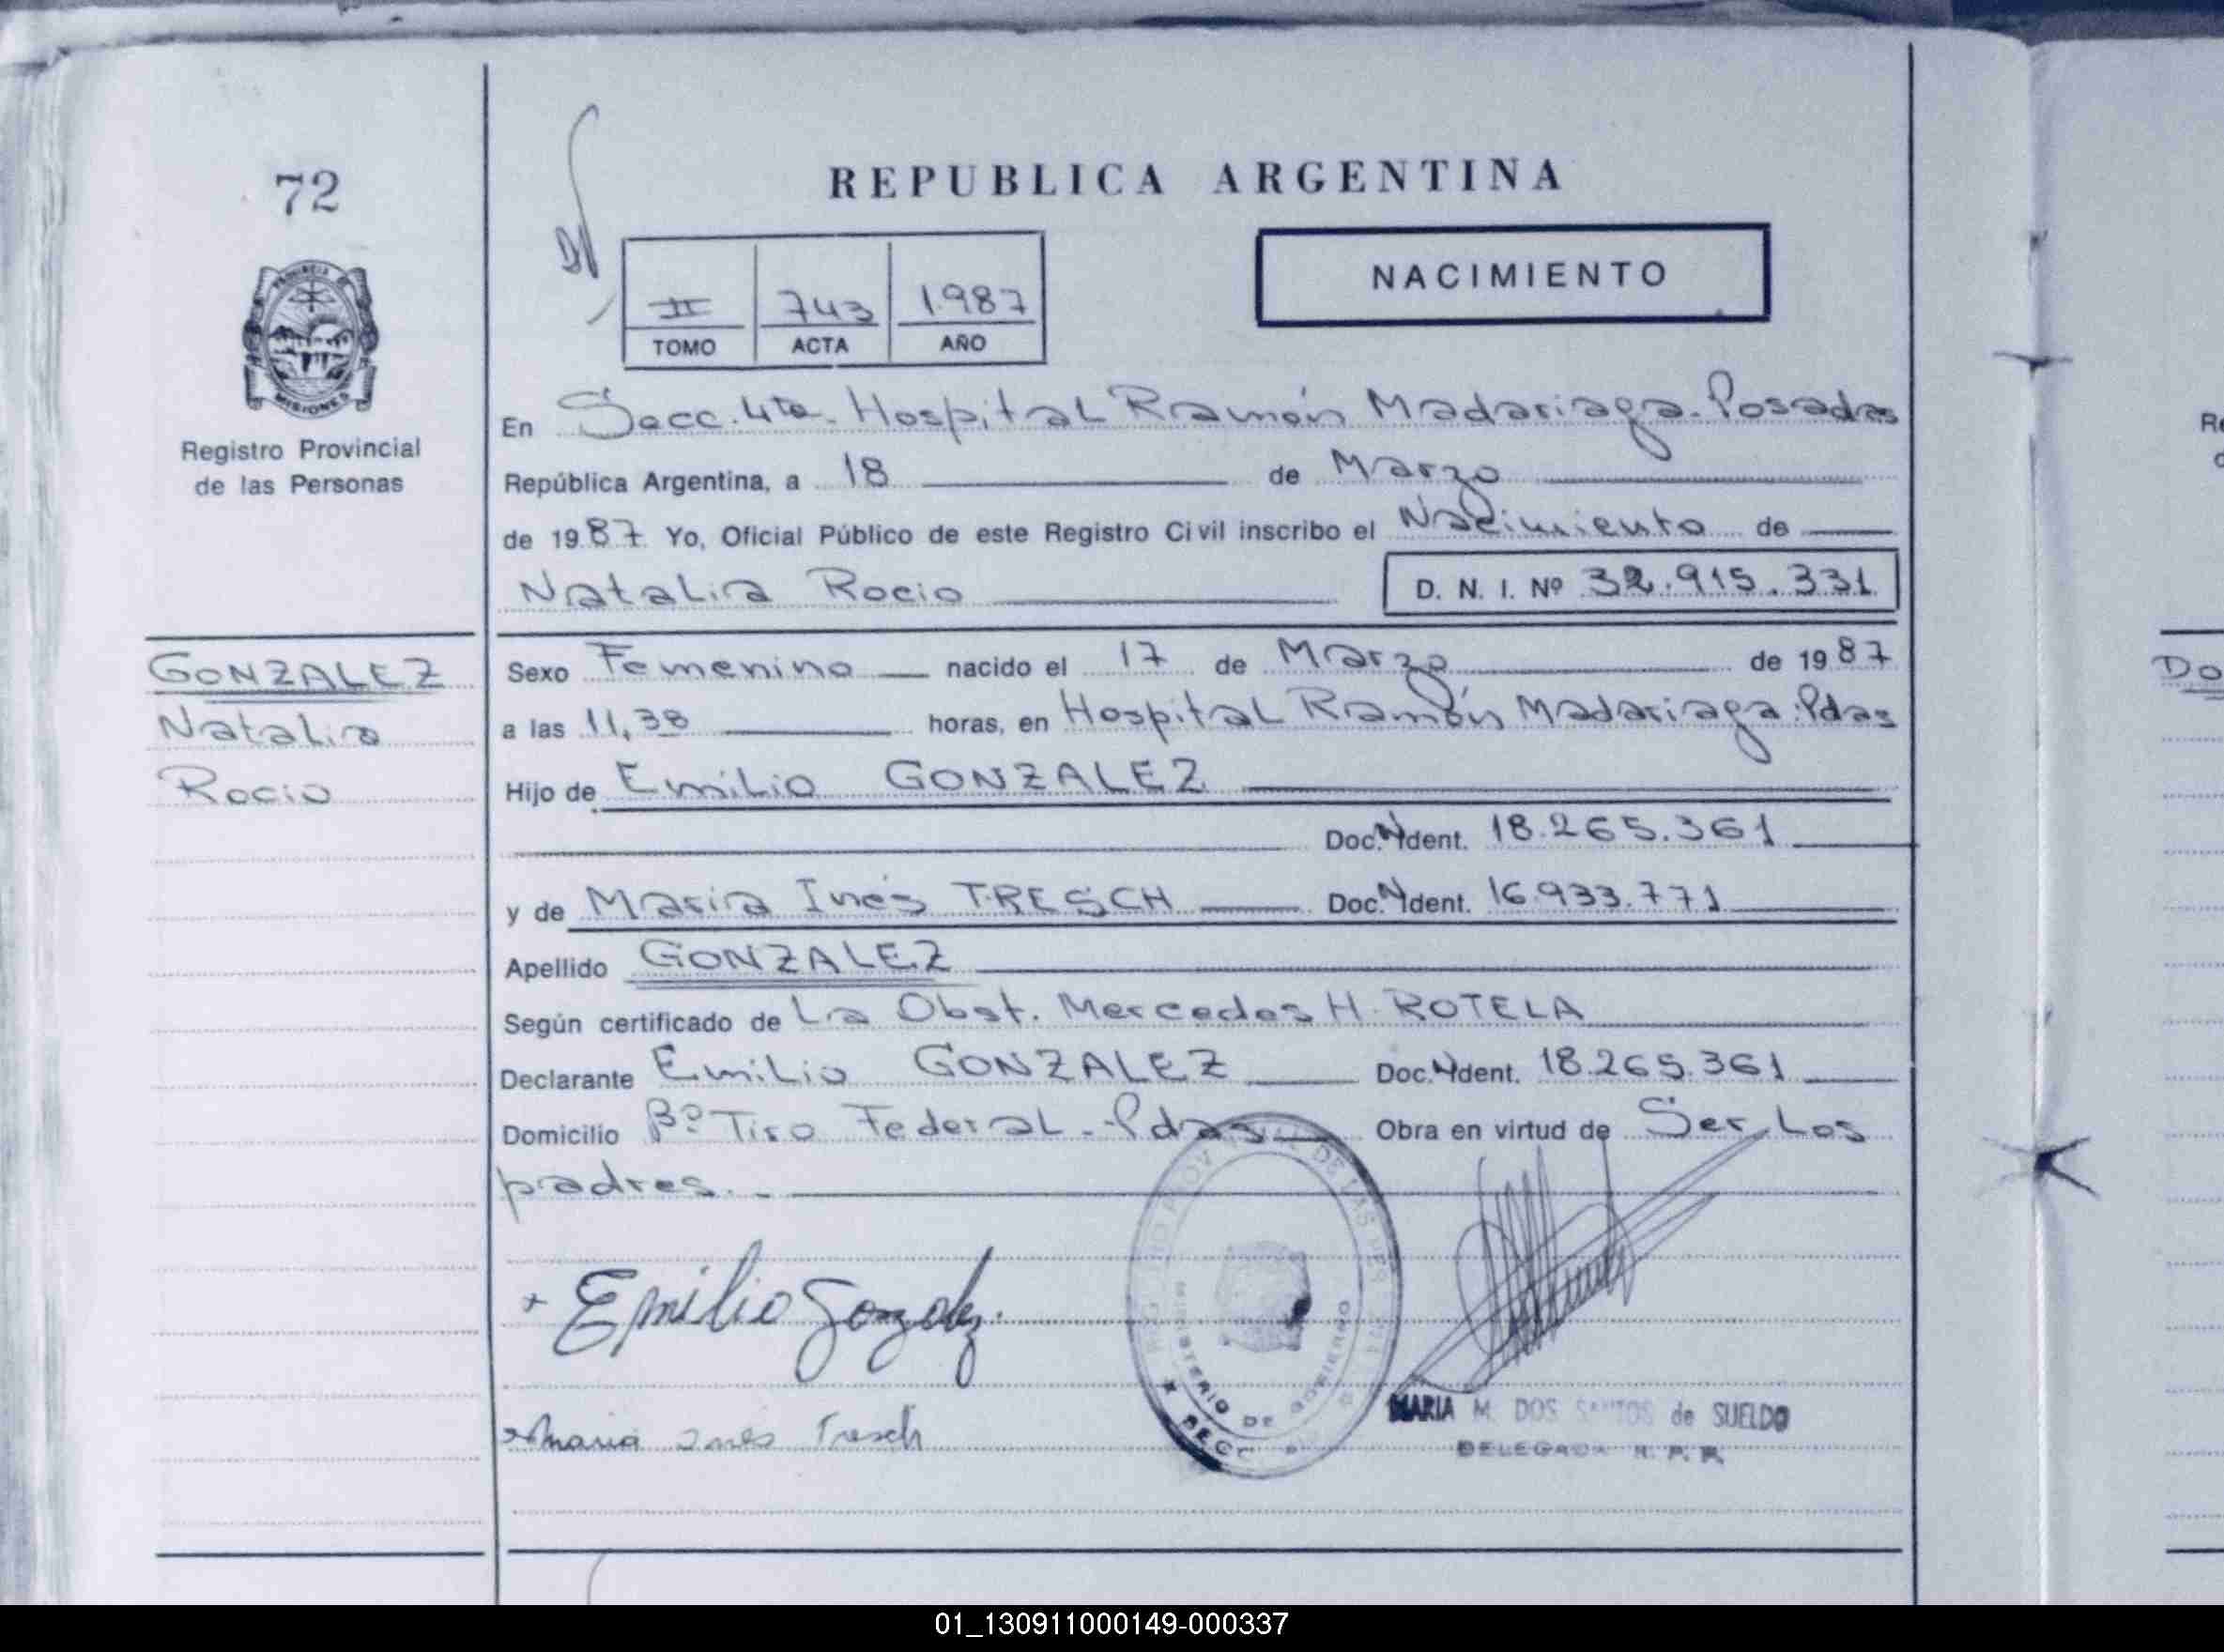 72
REPUBLICA ARGENTINA
NACIMIENTO
II 743 1.987
TOMO ACTA AÑO
PROVINCIA
MISIONES
Registro Provincial
de las Personas
En Secc. 4ta. Hospital Ramón Madariaga. Posadas
República Argentina, a 18 de Marzo
de 1987 Yo, Oficial Público de este Registro Civil inscribo el Nacimiento de
Natalia Rocio D. N. I. Nº 32.915.331
GONZALEZ
Natalia
Rocio
Sexo Femenino nacido el 17 de Marzo de 1987
a las 11,38 horas, en Hospital Ramón Madariaga. Pdas
Hijo de Emilio GONZALEZ
Doc. N Ident. 18.265.361
y de Maria Inés TRESCH Doc. N Ident. 16.933.771
Apellido GONZALEZ
Según certificado de La Obst. Mercedes H. ROTELA
Declarante Emilio GONZALEZ Doc. N Ident. 18.265.361
Domicilio Bº Tiro Federal - Pdas Obra en virtud de Ser Los
padres.
+ Emilio Gonzalez.
Maria Inés Tresch
MINISTERIO DE GOBIERNO
MARIA M. DOS SANTOS de SUELDO
DELEGADA R. P. P.
Do
01_130911000149-000337